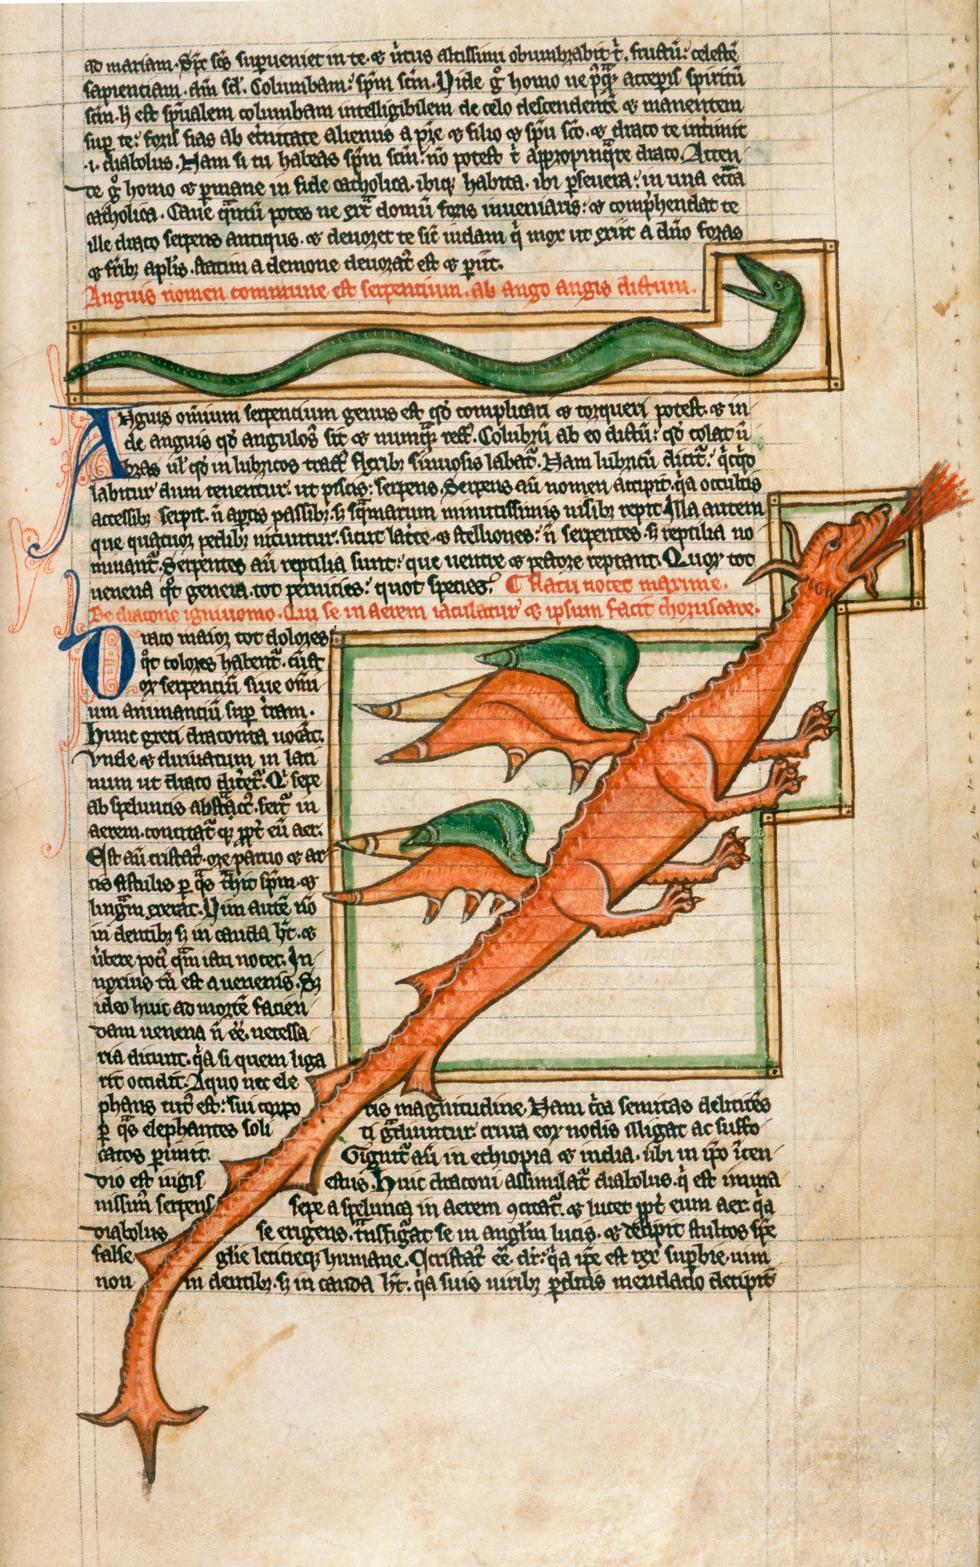 ad mariam. Sp̄c sc̄s superueniet in te. ⁊ uirtus altissimi obumbrabit t̄. fructū: celestē
sapienciam. Columbam: sp̄m sc̄m. Vide g̊ homo ne accepis spiritū
sc̄m. h̄ est sp̄ualem columbam intelligibilem de celo descendentē ⁊ manentem
sup te: foris fias ab et̄nitate alienus a p̄re ⁊ filio ⁊ sp̄u sc̄o. ⁊ draco te int̄imit
.i. diabolus. Nam si tu habeas sp̄m sc̄m: nō potest t̄ draco. Atten
te g̊ homo ⁊ permane in fide catholica. ibiq habita. ibi p̄seuera: in una eccā
catholica. Caue q̄ntū potes ne ext̄ domū foris inueniaris: ⁊ comp̄hendat te
ille draco serpens antiqus. ⁊ deuoret te sic̄ iudam q̄ mox ut exiit a dn̄o foras
⁊ fr̄ibȝ ap̄lis. statim a demone deuorat̄ est ⁊ p̄iit.
Anguis nomen commune est serpentium. ab ango angis dictum.
Anguis om̄ium serpencium genus est q̄d complicari ⁊ torqueri potest. ⁊ in
de anguis q̄d angulos̄ sit ⁊ numq̄ rectꝰ. Colubrū ab eo dictū: q̄d colat ū
bras ul̄ q̄d in lubricos tract̄ flexibȝ sinuosis labat̄. Nam lubricū dicit̄. q̄cq̄d
labitur dum tenentur. ut piscis: serpens. Serpens aū nomen accipit. q̄a occultis
accessibȝ serpit. n̄ aptis passibȝ. s̄ sq̄marum minutissimis nisibȝ repit. Illa autem
que quatuor pedibȝ nituntur. sicut lac̄te. ⁊ stelliones: n̄ serpentes. s̄ reptilia no
minant̄. Serpentes aū reptilia sunt: que uentre ⁊ pectore reptant. Quor̄ tot
uenena q̄t genera. tot pernicies: quot species. flatu nocet maxime.
De dracone igniuomo. Qui se in aerem iaculatur ⁊ ipsum facit choruscare.
Draco maior tot dolores
q̄t colores habent̄. cūct
or̄ serpenciū siue om̄i
um animantiū sup̄ t̄ram.
Hunc greci draconta uocāt.
vnde ⁊ diriuatum in lati
num ut draco dic̄et̄. Q̄i sepe
ab speluncis abst̄act̄. fert̄ in
aerem. concitat̄ q̄ pp̄t eū aer.
Est aū cristat̄. ore paruo ⁊ ar
tis fistulis p̄ q̄s t̄hit sp̄m. ⁊
lingu̅m exerat̄. Vim autē nō
in dentibȝ s̄ in cauda h̄t. ⁊
ūbere poci q̄m ictu nocet. In
noxius tn̄ est a uenenis. Sȝ
ideo huic ad mortē facien
dam uenena n̄ eē̄. necessa
ria dicunt. q̄a si quem liga
rit occidit. A quo nec ele
phans tut̄ est: sui corpo ris magnitudine. Nam c̄ca semitas delitēs
p̄ q̄s elephantes soli ti g̊diuntur. crura eor̄ nodis illigat ac suffo
catos p̄imit. Gignit̄ aū in ethiopia ⁊ india. ubi in ip̄o īcen
dio est iugis estus. Huic draconi assimilat̄ diabolus. q̄ est imma
nissim̄ serpens sepe a spelunca in aerem ꝯcitat̄. ⁊ lucet pp̄t eum aer. q̄a
diabolus se erigens. t̄nsfigat̄ se in angl̄m lucis. ⁊ decipit stultos spe
false gl̄ie leticieqȝ humane. Cristat̄ eē̄. dr̄: q̄a ip̄e est rex supbie. uim
non in dentibȝ. s̄ in cauda h̄t. q̄a suis uiribȝ p̄ditis mendacio decipit